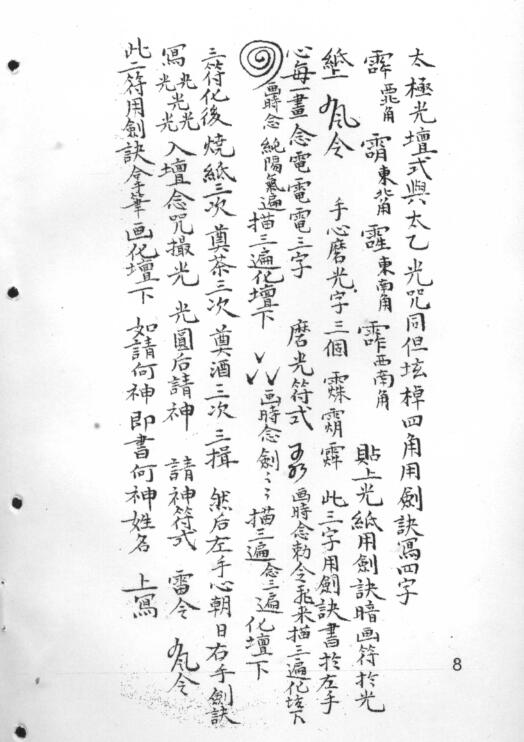 太極光壇式與太乙光咒同但坛棹四角用劍訣寫四字
西北角 東北角 東南角 西南角 貼上光紙用劍訣暗画符於光
紙上 令 手心磨光字三個 此三字用劍訣書於左手
心每一畫念電電電三字 磨光符式 画時念勅令 米描三遍化坛下
画時念純陽氣遍描三遍化壇下 画時念劍〻〻描三遍念三遍化壇下
三符化後燒紙三次奠茶三次奠酒三次三揖 然后左手心朝日右手劍訣
寫光光光光光光入壇念咒撮光 光圓后請神 請神符式 雷令 令
此二符用劍訣合筆画化壇下 如請何神即書何神姓名 上寫
8